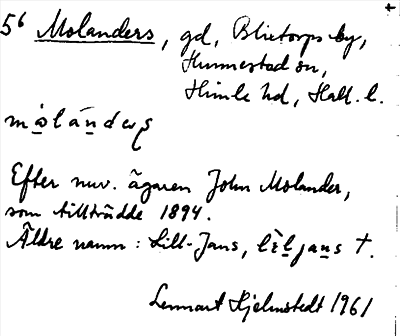 56 Molanders, gd, Blixtorps by,
Hunnestad sn,
Himle hd, Hall. l.
mo̱lánde̱rs
Efter nuv. ägaren John Molander,
som tillträdde 1894.
Äldre namn: Lill-Jans, lìḻja̱ns †.
Lennart Hjelmstedt 1961